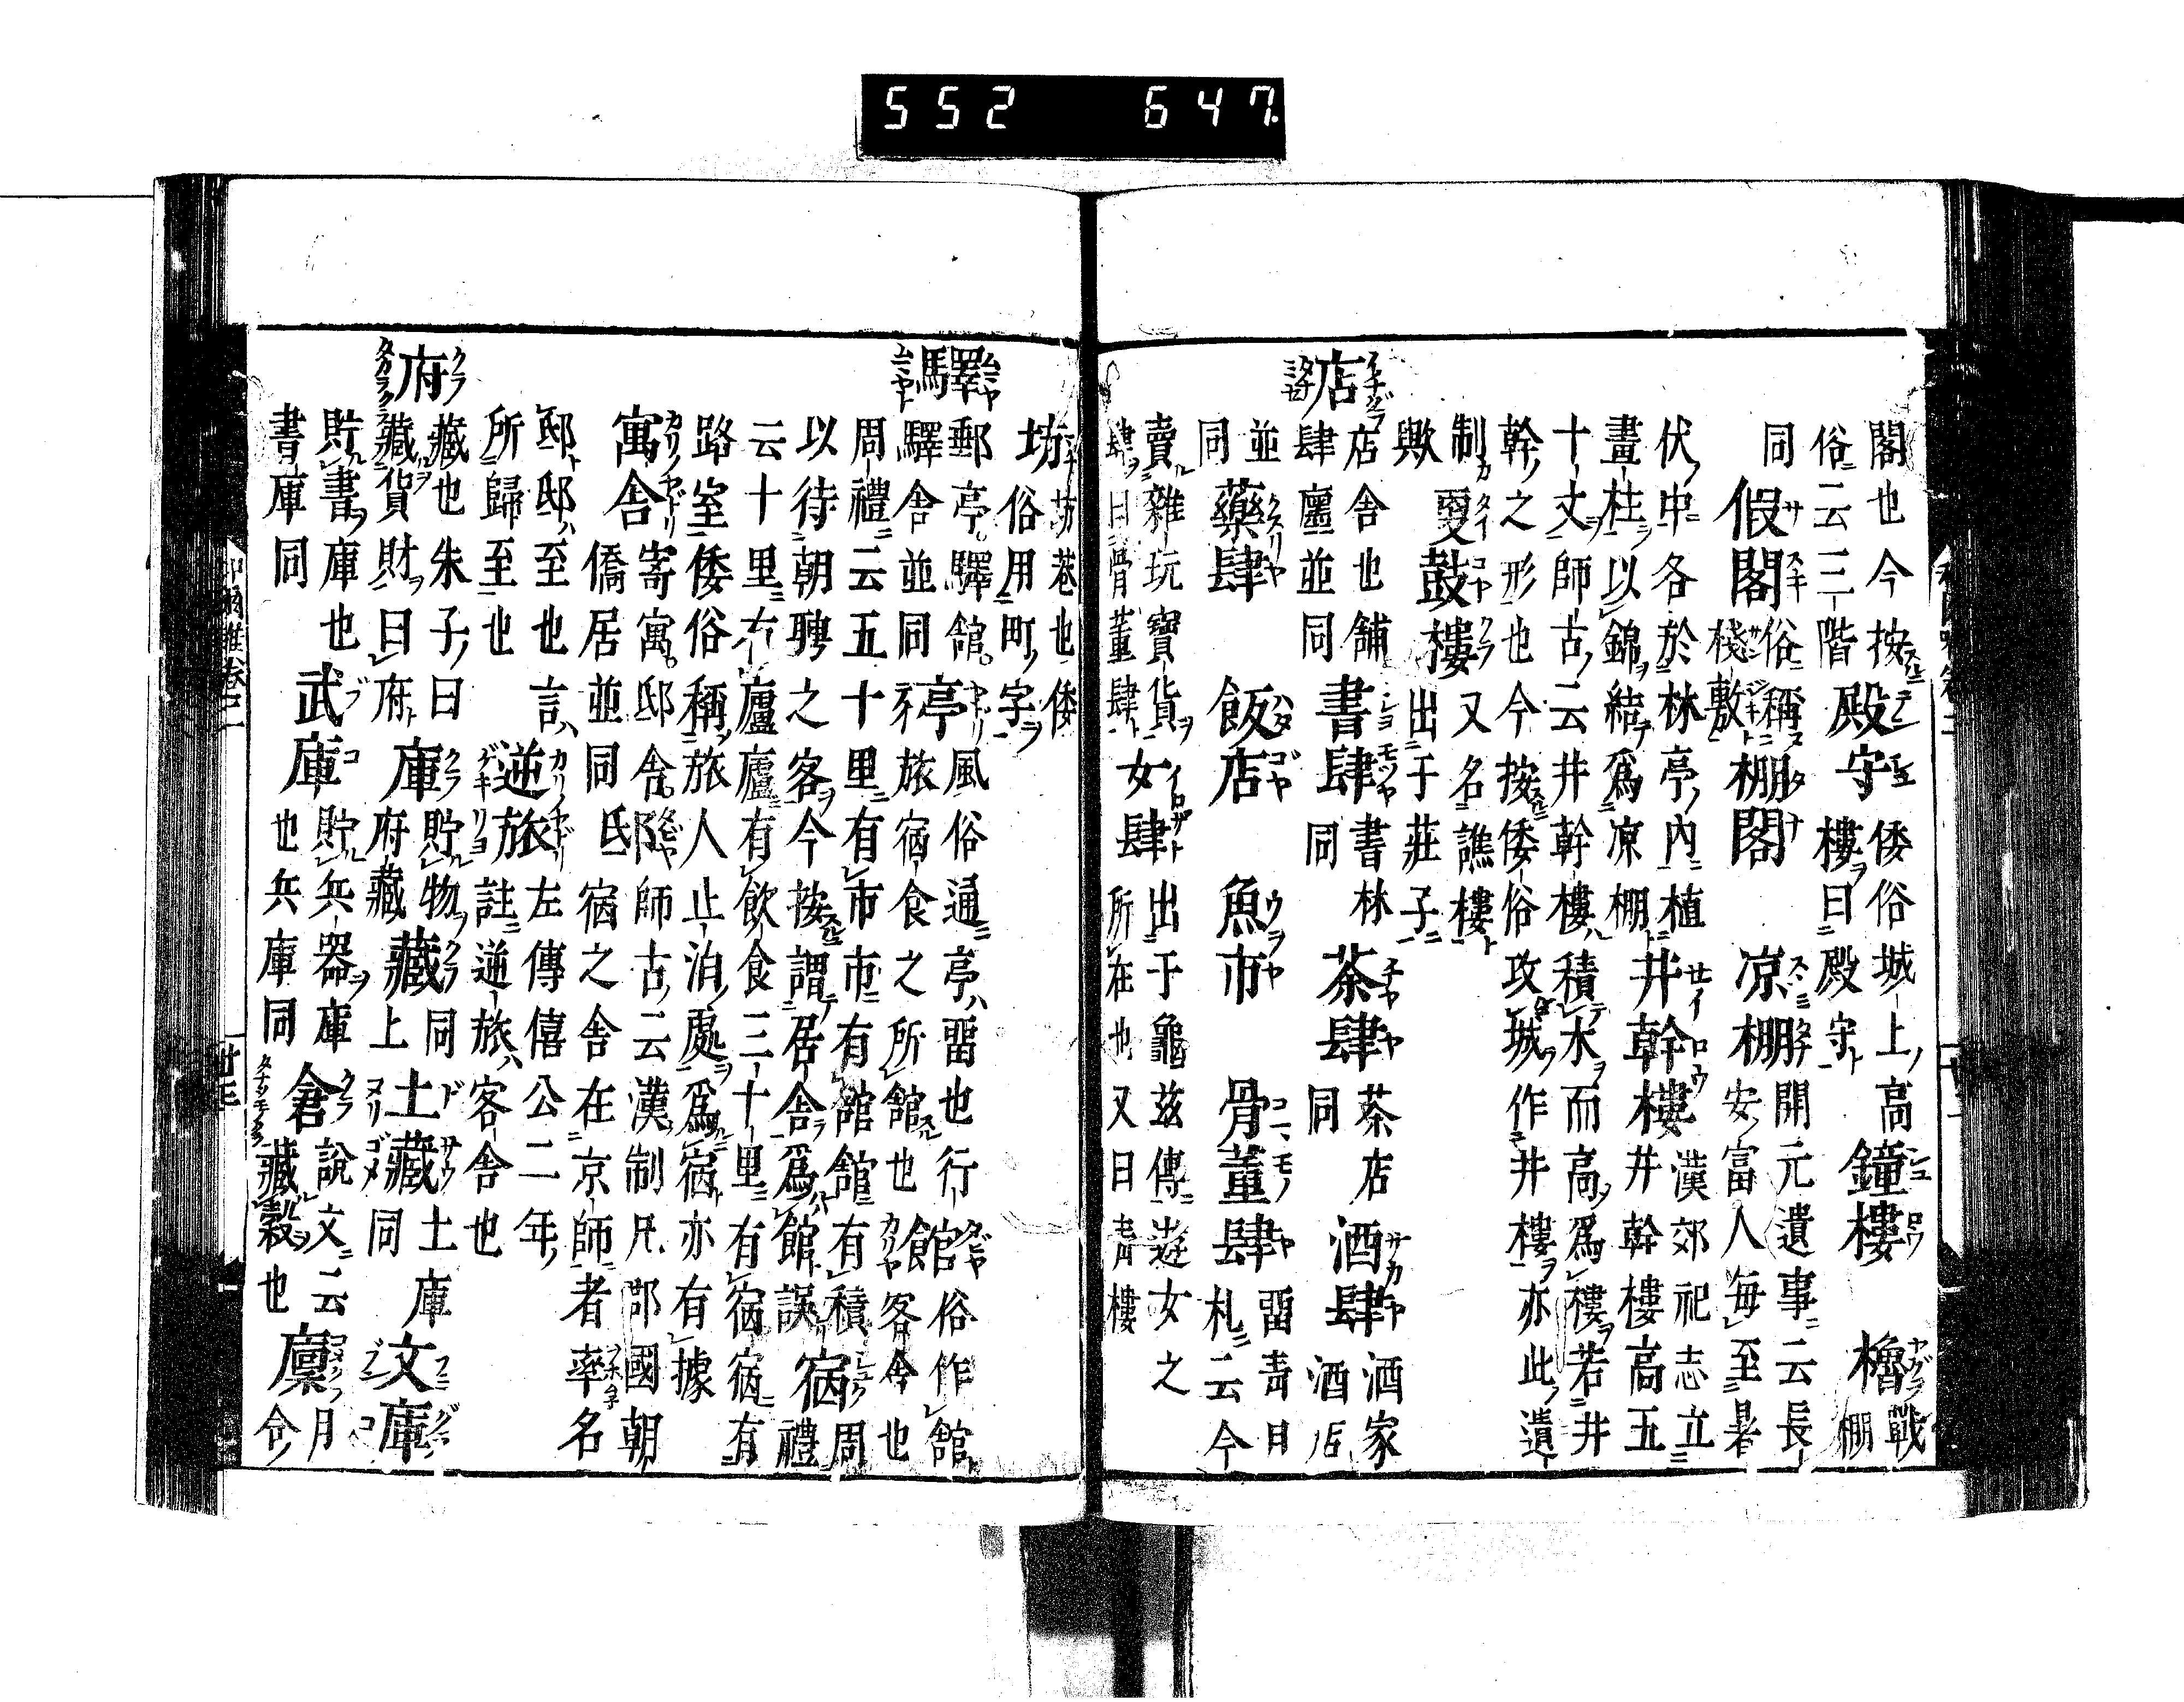 閣也今按
俗云三階
殿守
倭俗城上ノ高
樓ヲ曰殿守
鐘樓
櫓
戰
棚
同
假閣
俗稱
棧敷
棚閣
凉棚
開元遺事云長
安富人每至暑
伏中各於林亭內植
畫柱以錦結爲凉棚
井幹樓
漢郊祀志立
井幹樓高五
十丈師古云井幹樓積木而高爲樓若井
幹之形也今按倭俗攻城作井樓亦此遺
制
歟
鼓樓
又名譙樓
出于莊子
店
店舍也舖
肆廛並同
書肆
書林
同
茶肆
茶店
同
酒肆
酒家
酒店
並
同
藥肆
飯店
魚市
骨董肆
畱靑日
札云今
賣雜玩寶貨
肆曰骨董肆
女肆
出于龜茲傳遊女之
所在也又曰靑樓
坊
坊巷也倭
俗用町ノ字
驛
郵亭驛舘
驛舍並同
亭
風俗通亭畱也行
旅宿食之所舘也
館
俗作舘
客舍也
周禮云五十里有市市有舘舘有積
以待朝聘之客今按謂居舍爲館誤
宿
周
禮
云十里有廬廬有飲食三十里有宿宿有
路室倭俗稱旅人止泊處爲宿亦有據
寓舍
寄寓邸舍
僑居並同
邸
師古云漢制凡郡國朝
宿之舍在京師者率名
邸邸至也言
所歸至也
逆旅
左傳僖公二年
註逆旅客舍也
府
藏也朱子曰
藏貨財曰府
庫
貯物
府藏
藏
同
上
土藏
土庫
同
文庫
貯書庫也
書庫同
武庫
貯兵器庫
也兵庫同
倉
說文云
藏穀也
廩
月
令
552 647